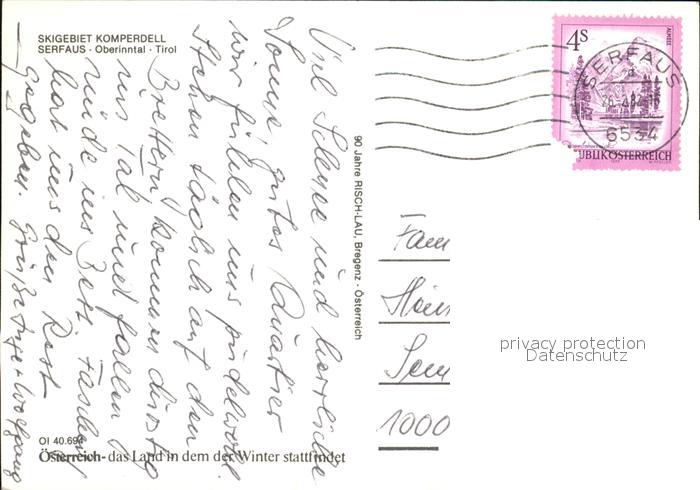 SKIGEBIET KOMPERDELL
SERFAUS · Oberinntal · Tirol
Viel Schnee und herrliche
Sonne, gutes Quartier
wir fühlen uns pudelwohl
stehen täglich auf den
Brettern kommen durstig
ins Tal und fallen
müde ins Bett. Fasching
hat uns den Rest
gegeben. Grüße Inge + Wolfgang
OI 40.694
Österreich - das Land in dem der Winter stattfindet
90 Jahre RISCH-LAU, Bregenz · Österreich
4S
ALMSEE
UBLIK ÖSTERREICH
SERFAUS
6534
Fam
1000
privacy protection
Datenschutz